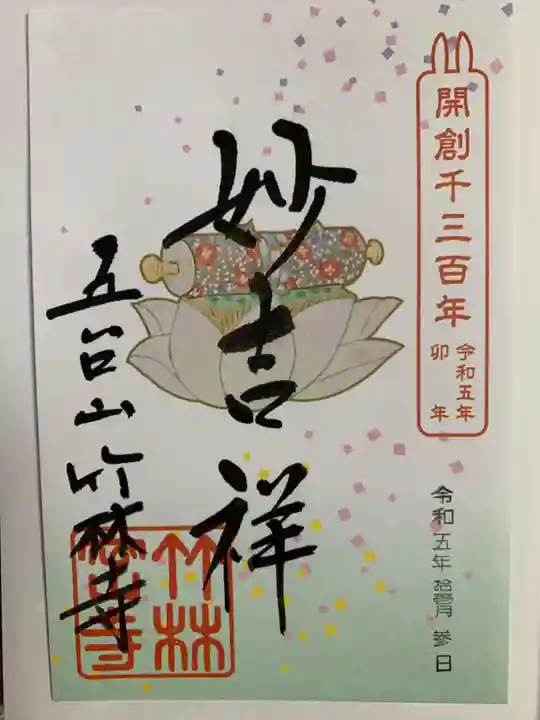 開創千三百年
令和五年
卯年
令和五年 拾壹月 参日
妙吉祥
五台山竹林寺
竹林寺